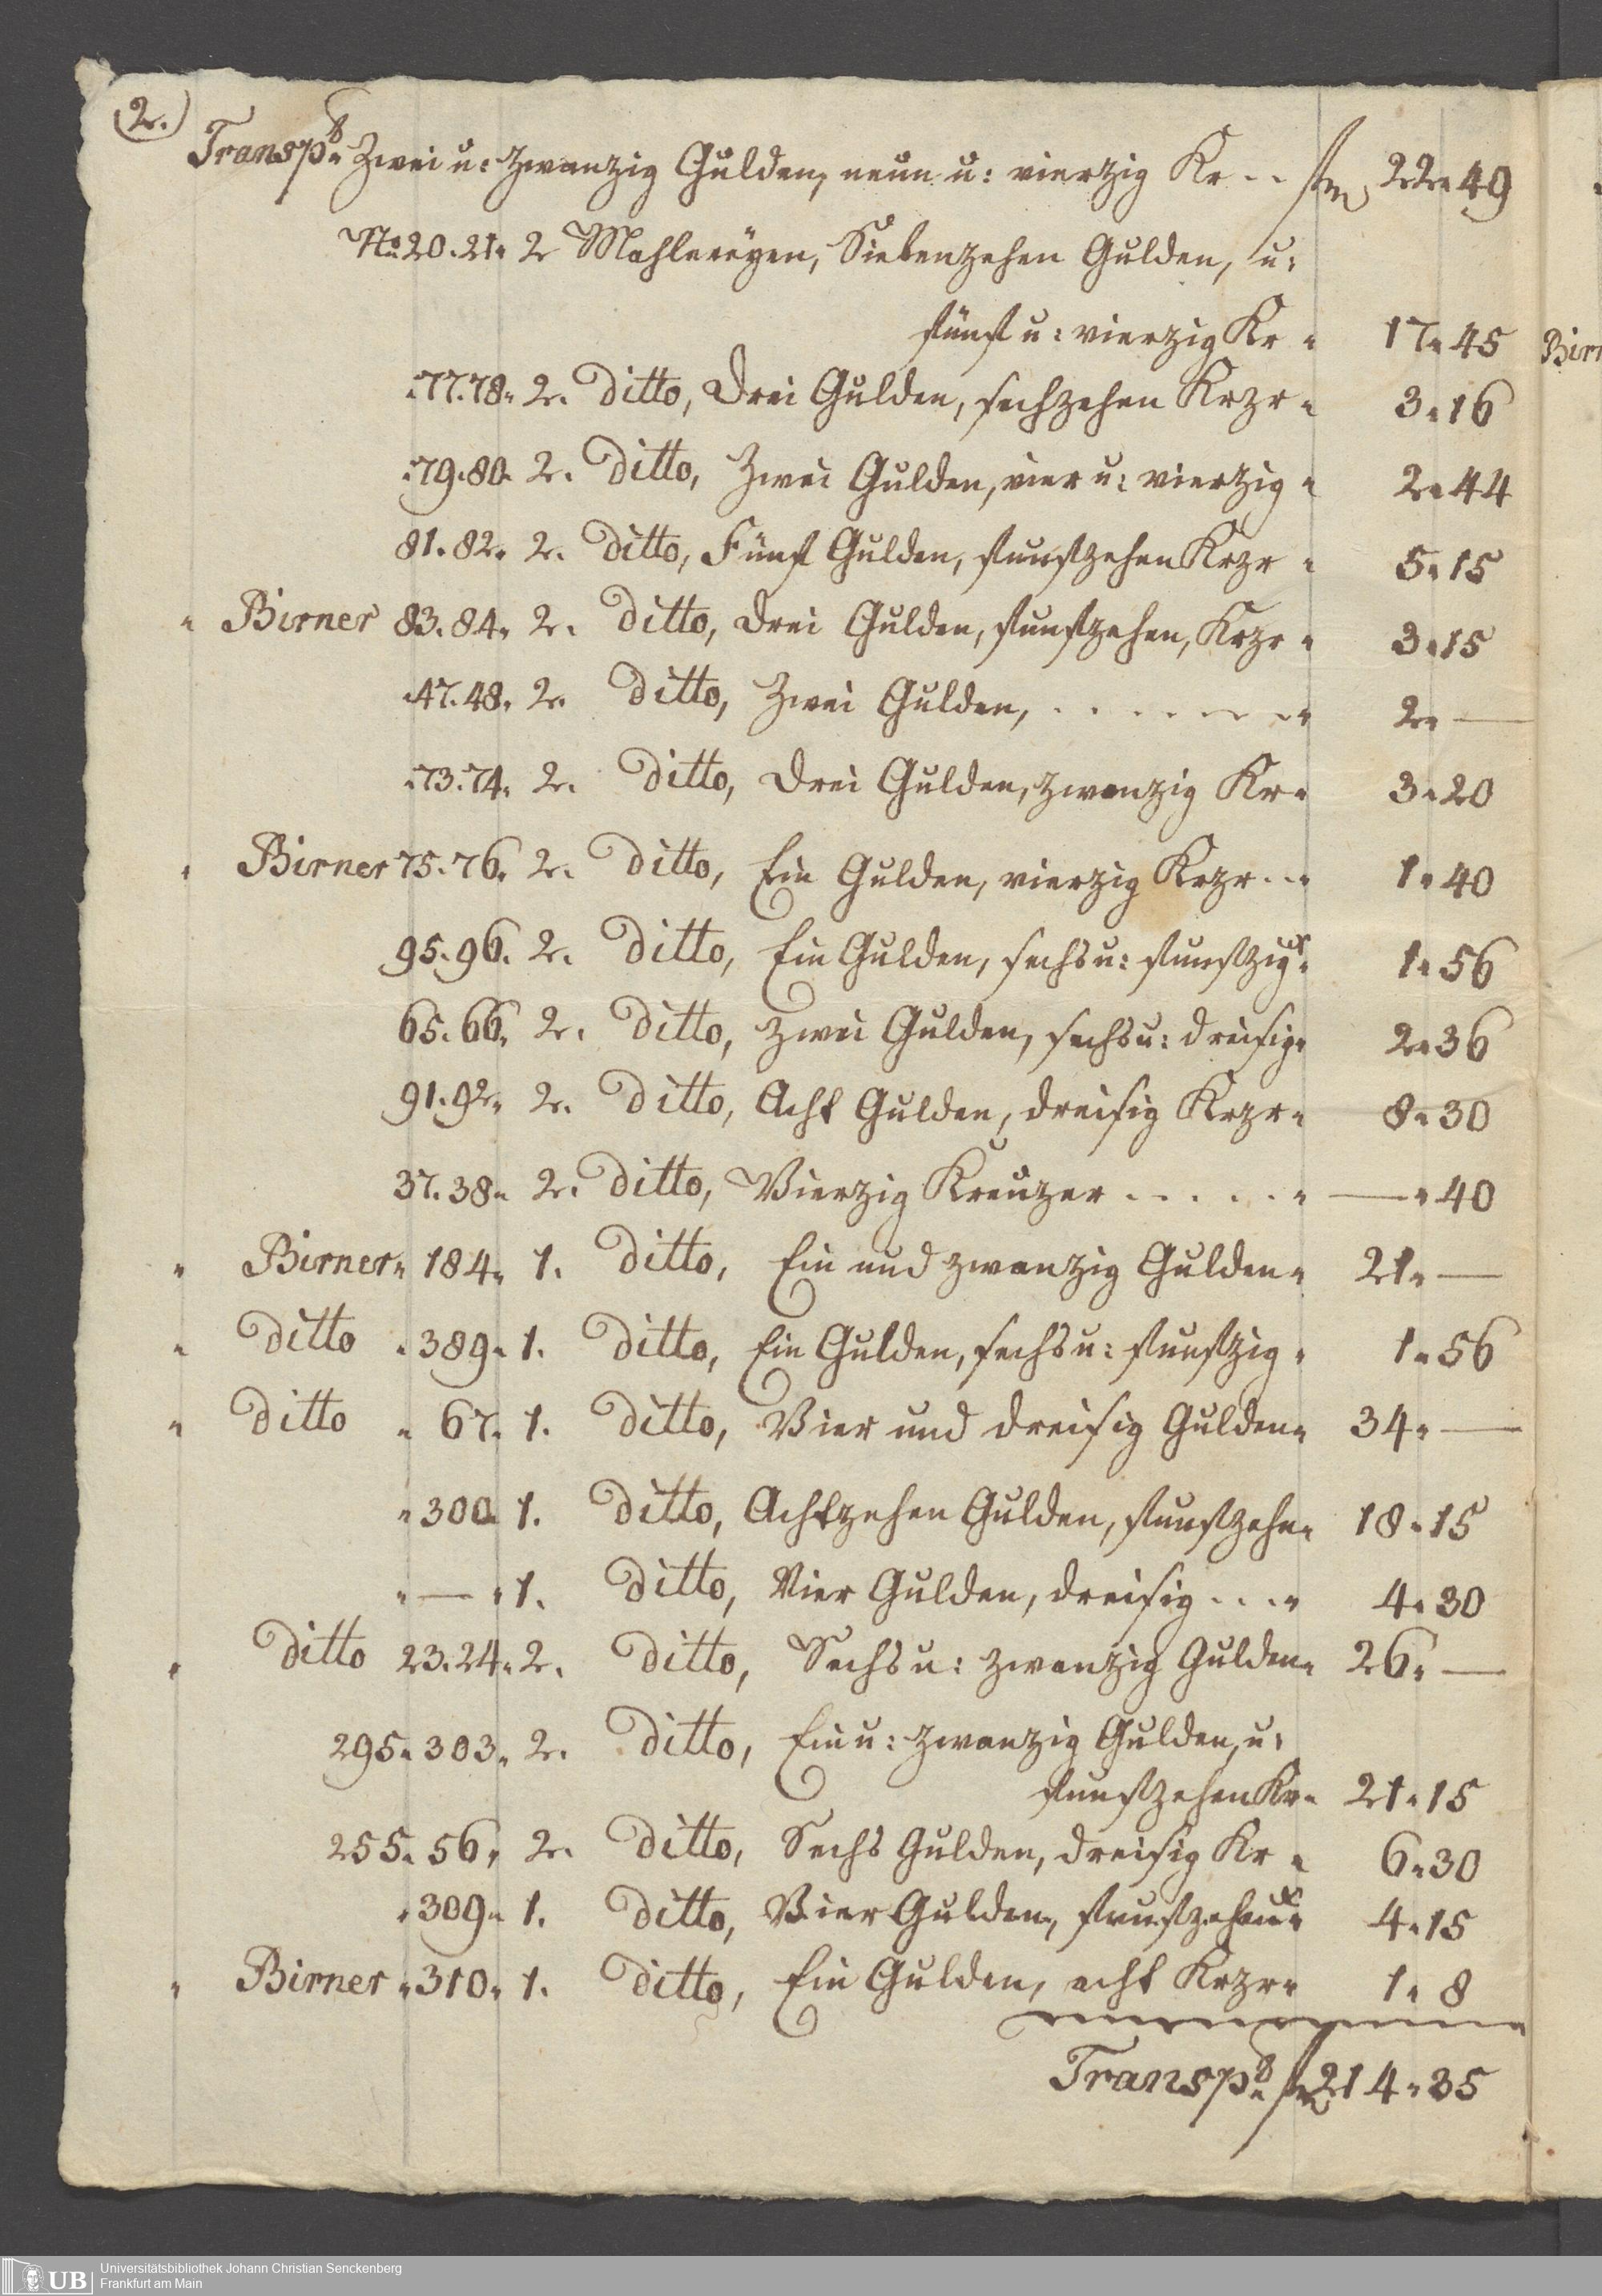 2.
Transp. Zwei u: zwanzig Gulden, neun u: vierzig Kr . . fl 22 „ 49
No 20. 21 „ 2 Mahlereÿen, Siebenzehen Gulden, u:
fünf u: vierzig Kr „ 17 „ 45
„ 77. 78 „ 2. ditto, Drei Gulden, sechzehen Krzr „ 3 „ 16
„ 79. 80. 2. ditto, Zwei Gulden, vier u: vierzig „ 2 „ 44
81. 82. 2. ditto, Fünf Gulden, funfzehen Krzr „ 5 „ 15
„ Birner 83. 84 „ 2. ditto, Drei Gulden, funfzehen, Krzr „ 3 „ 15
„ 47. 48. 2. ditto, Zwei Gulden, . . . . . . . „ 2 „ —
„ 73. 74. 2. ditto, Drei Gulden, zwanzig Kr „ 3 „ 20
„ Birner 75. 76. 2. ditto, Ein Gulden, vierzig Krzr . . „ 1 „ 40
95. 96. 2. ditto, Ein Gulden, sechs u: funfzig „ 1 „ 56
65. 66. 2. ditto, Zwei Gulden, sechs u: dreisig „ 2 „ 36
91. 92 „ 2. ditto, Acht Gulden, dreisig Krzr „ 8 „ 30
37. 38 „ 2. ditto, Vierzig Kreuzer . . . . . . „ — „ 40
„ Birner „ 184 „ 1. ditto, Ein und zwanzig Gulden „ 21 „ —
„ ditto „ 389 „ 1. ditto, Ein Gulden, sechs u: funfzig „ 1 „ 56
„ ditto „ 67 „ 1. ditto, Vier und dreisig Gulden „ 34 „ —
„ 300 „ 1. ditto, Achtzehen Gulden, funfzehn „ 18 „ 15
„ — „ 1. ditto, Vier Gulden, dreisig . . . „ 4 „ 30
„ ditto 23. 24 „ 2. ditto, Sechs u: zwanzig Gulden „ 26 „ —
295 „ 303 „ 2. ditto, Ein u: zwanzig Gulden, u:
funfzehen Kr „ 21 „ 15
255 „ 56 „ 2. ditto, Sechs Gulden, dreisig Kr „ 6 „ 30
„ 309 „ 1. ditto, Vier Gulden, funfzehen „ 4 „ 15
„ Birner „ 310 „ 1. ditto, Ein Gulden, acht Krzr „ 1 „ 8
Transp. fl 214 „ 35
Birn
UB Universitätsbibliothek Johann Christian Senckenberg
Frankfurt am Main